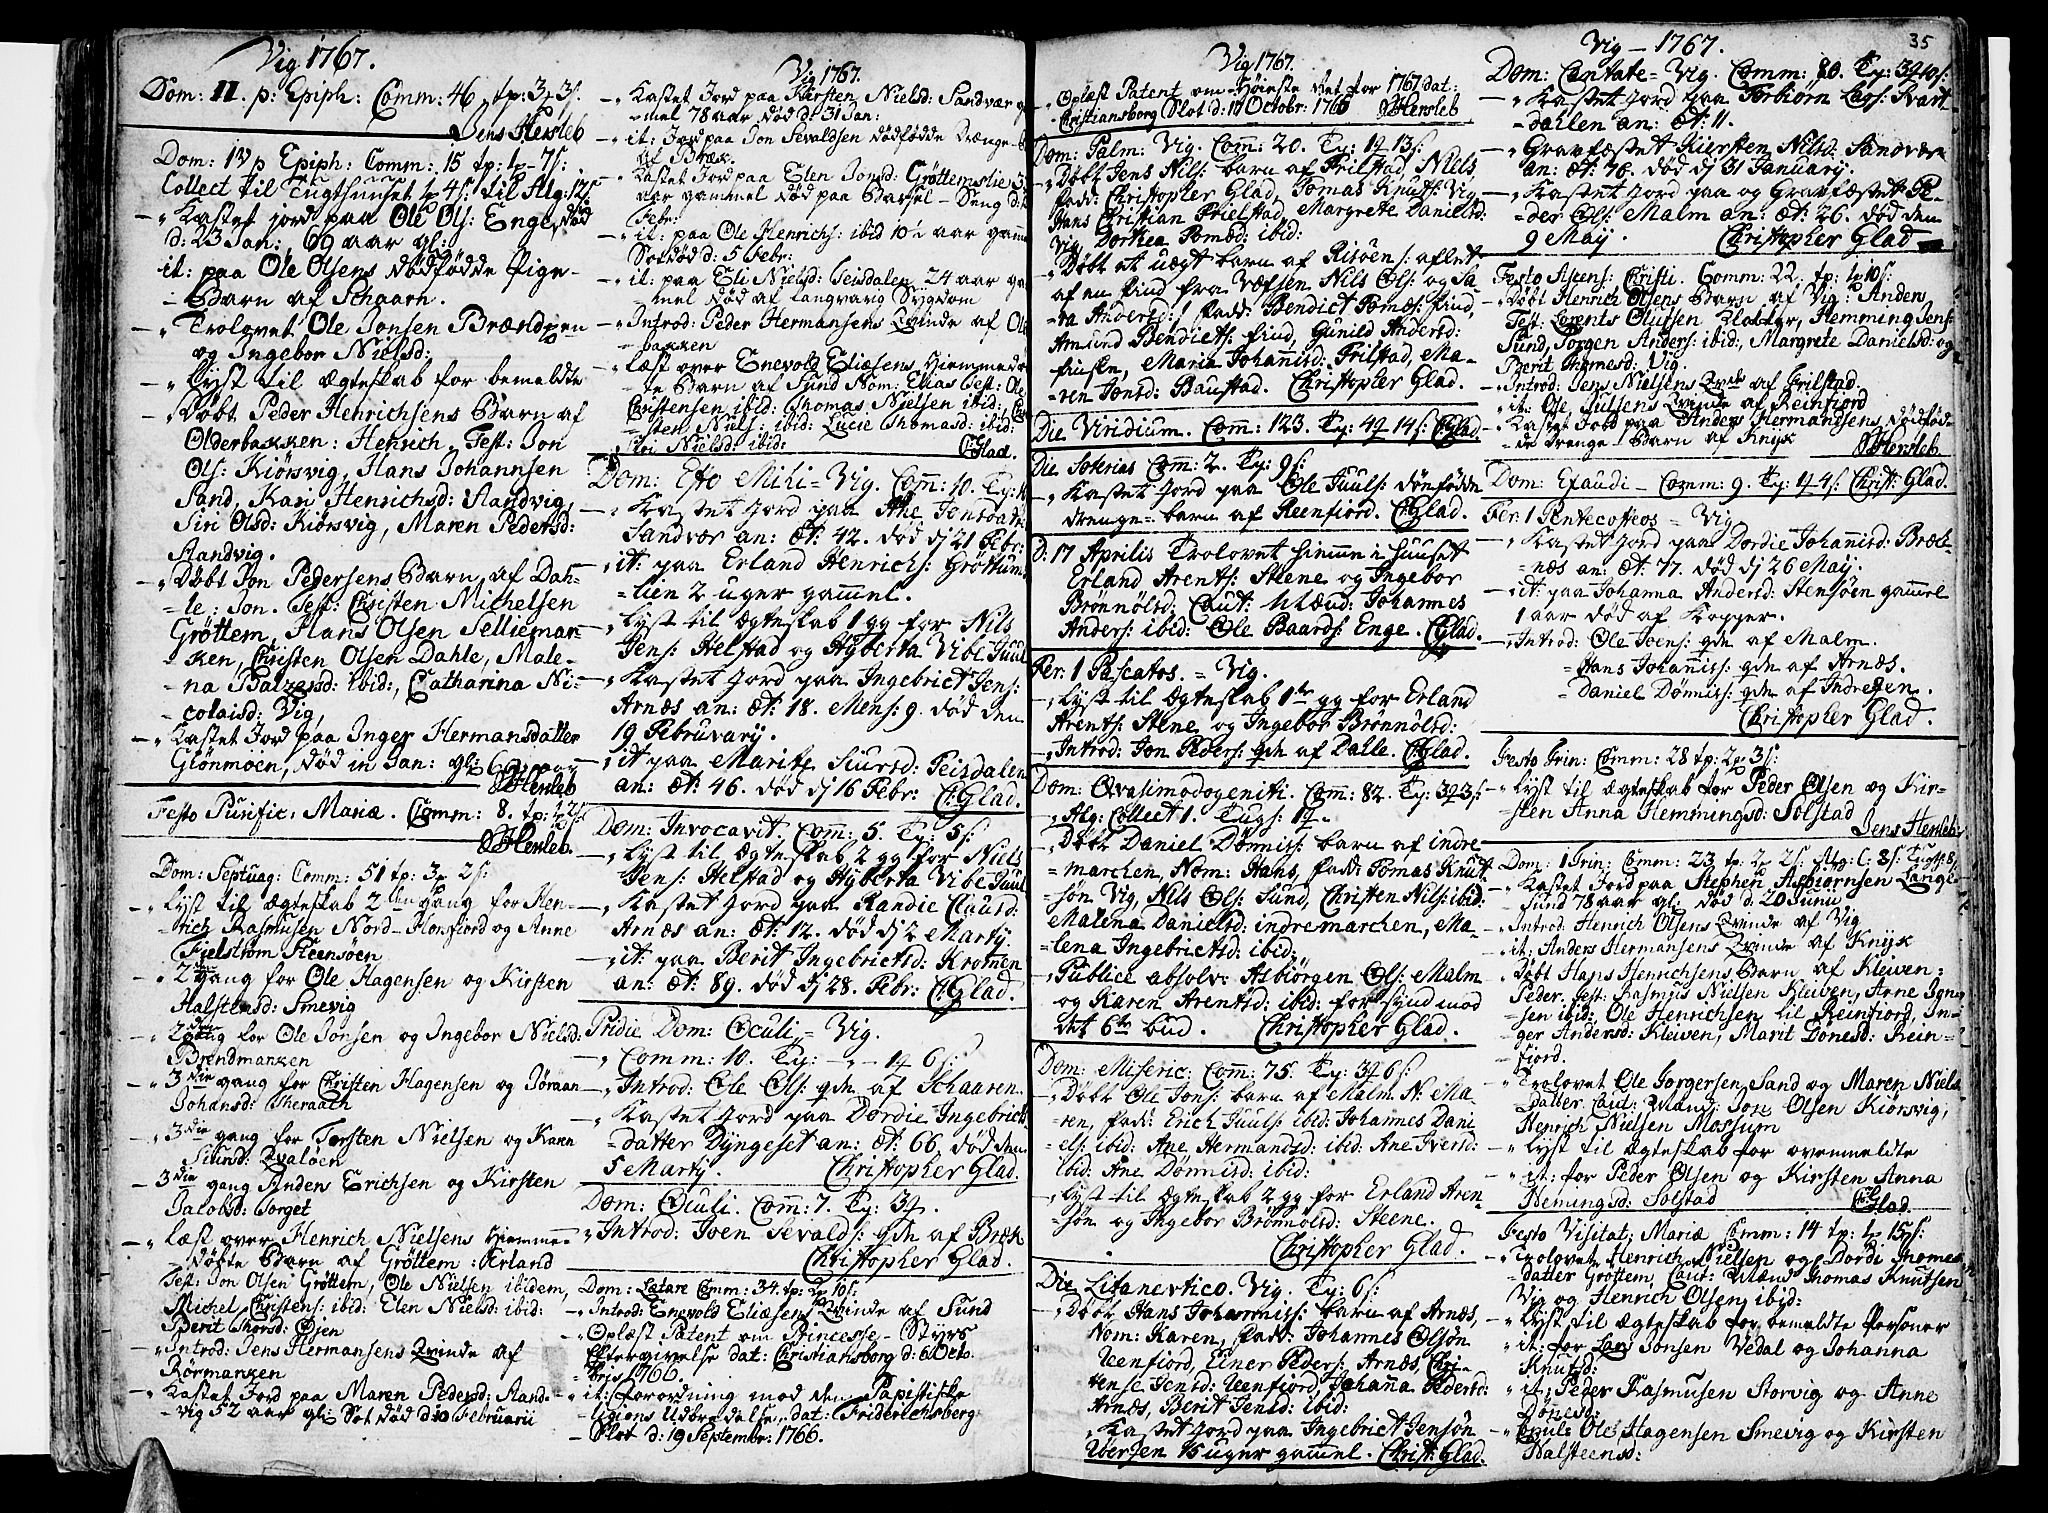 Vig 1767.
Dom: II. p: Epiph: Comm: 46 tp: 3 3 s:
Jens Hersleb
Dom: IV p Epiph: Comm: 15 tp: 1 - 7 s:
Collect til Tugthuuset 4 s: til Alg: 12 s
Kastet jord paa Ole Ols: Enge, død
d: 23 Jan:, 69 aar gl:
it: paa Ole Olsens dødfødde Pige-
Barn af Schaarn.
Trolovet Ole Jonsen
og Ingebor Nielsd:
Lyst til Ægteskab for bemældte
Døbt Peder Henrichsens Barn af
Olderbakken: Henrich. Test: Jon
Ols: Kiørsvig, Hans Johannsen
Sand, Kari Henrichsd: Standvig,
Siri Olsd: Kiørsvig, Maren Pedersd:
Standvig.
Døbt Jon Pedersens Barn af Dah-
le: Jon. Test: Christen Michelsen
Grøttem, Hans Olsen Sellieman-
ken, Christen Olsen Dahle, Male-
na Balzersd: ibid:, Catharina Ni-
colaisd: Vig,
Kastet Jord paa Inger Hermansdatter
Glønmoen, død in Jan: gl: 6 aar
Hersleb
Festo Purific: Mariæ. Comm: 8. tp: 1 2 s:
Hersleb.
Dom: Septuag: Comm: 51 tp: 3 2 s:
Lyst til Ægteskab 2den gang for Hen-
rich Rasmusen Nord-Horsfiord og Anne
Fjelstrøm Steensøen
2 gang for Ole Hagensen og Kirsten
Halstensd: Smevig
2 gang for Ole Jonsen og Ingebor Nielsd:
3die gang for Christen Hagensen og Jøraan
Johansd:
3die gang for Torsten Nielsen og Karn
Siursd: Hvaløen
3die gang Anden Erichsen og Kirsten
Jacobsd: Torget
Læst over Henrich Nielsens Hiemme-
døbte Barn af Grøttem: Erland
Test: Jon Olsen Grøttem, Ole Nielsen ibidem,
Michel Christens: ibid: Elen Nielsd: ibid:
Berit Thorsd: Øjen
Introd: Jens Hermansens Qvinde af
Rørmarken
Kastet Jord paa Maren Pedersd: Stand-
vig 52 aar gl: Sot død d: 10 Februarii
Vig 1767.
Kastet Jord paa Kersten Nielsd: Sandvær g
mel 78 aar død d: 31 Jan:
it: Jord paa Jon Sevaldsen dødfødde Drænge-
af Bræk.
Kastet Jord paa Elen Jonsd: Grøttemslie 3
aar gammel død paa Barsel-Seng d:
Febr:
it: paa Ole Henrichs: ibid 10½ aar gam
Sotdød d: 5 Febr:
it: paa Eli Nielsd: Teisdalen 24 aar ga
mel død af langvarig Sygdom
Introd: Peder Hermansens Qvinde af Ol
bakken
Læst over Enevold Eliæsens Hiemmedø
te Barn af Sund Nom: Elias Test: Ole
Christensen ibid: Thomas Nielsen ibid: Ch
sten Niels: ibid: Lucie Thomasd: ibid:
Siri Nielsd: ibid:
C: Glad.
Dom: Esto Mihi = Vig. Com: 10. Tp: 
Kastet Jord paa Ane Jonsdatr:
Sandvær an: æt: 42. død dj 21 Febr:
it: paa Erland Henrichs: Grøttums
lien 2 uger gammel.
Lyst til Ægteskab 1 gg for Nils
Jens: Helstad og Hyberta Vibe Juul
Kastet Jord paa Ingebrict Jens:
Arnæs an: æt: 18. Mens: 9. død den
19 Februarij.
it paa Marite Siursd: Teisdalen
an: æt: 46. død dj 16 Febr: C: Glad.
Dom: Invocavit. Com: 5. Tp: 5 s:
Lyst til Ægteskab 2 gg for Niels
Jens: Helstad og Hyberta Vibe Juul
Kastet Jord paa Randie Clausd:
Arnæs an: æt: 12. død dj 2 Martij.
it: paa Berit Ingebrictsd: Kromen
an: æt: 89. død dj 28. Febr: C: Glad.
Pridie Dom: Oculi = Vig.
Comm: 10. Tp: - - 1 6 s:
Introd: Ole Ols: qde af Schaaren.
Kastet Jord paa Dordie Ingebrict
datter Dyngeset an: æt: 66. død den
5 Martij. Christopher Glad.
Dom: Oculi. Com: 7. Tp: 3.
Introd: Joen Sevalds: qde af Bræk
Christopher Glad.
Dom: Lætare Comm: 34. tp: 2 10 s:
Introd: Enevold Eliæsens Qvinde af Sund
Oplæst Patent om Princesse-Styrs
Eftergivelse dat: Christiansborg d: 6 Octo
bris 1766.
it: forordning mod den Papistiske
ligions Udbredelse, dat: Friderichsberg
Slot d: 19 September: 1766.
Vig 1767.
Oplæst Patent om Høieste Ret for 1767 dat:
Christiansborg Slot d: 10 Octobr: 1766 Hersleb
Dom: Palm: Vig. Com: 20. Tp: 1 13 s:
Døbt Jens Nils: barn af Frilstad, Niels,
fadd: Christopher Glad, Tomas Knuts: Vig
Hans Christian Frielstad, Margrete Danielsd:
Vig, Dorthea Tomæd: ibid:
Døbt et uægt barn af Risøen: aflet
af en find fra Vefsen Nils Ols: og Sa-
ra Andersd:, fadd: Bendict Tomæs: find,
Amund Bendicts: find, Gunild Andersd:
finsken, Maria Johannisd: Frilstad, Ma-
ren Jonsd: Baustad. Christopher Glad.
Die Viridium. Com: 123. Tp: 4 14 s: C: Glad.
Die Soterias Com: 2. Tp: 9 s:
Kastet Jord paa Ole Juuls: dødfødde
drenge-barn af Reenfiord. C: Glad.
D: 17 Aprilis Trolovet hiemme i huuset
Erland Arents: Steene og Ingebor
Brønnølsd: Caut: Mænd: Johannes
Anders: ibid: Ole Baards: Enge. C: Glad.
Fer: 1 Pascatos. = Vig.
Lyst til Ægteskab 1te gg for Erland
Arents: Stene og Ingebor Brønnølsd:
Introd: Jon Peders: qde af Dahle. C: Glad.
Dom: Qvasimodogeniti. Com: 82. Tp: 3 3 s:
Alg: Collect 1. Tugs: 1.
Døbt Daniel Dønnis: barn af indre
marchen, Nom: Hans, fadd: Tomas Knut
søn Vig, Nils Ols: Sund, Christen Nils: ibid:
Malena Danielsd: indremarchen, Ma-
lena Ingebrictsd: ibid:
Publice absolv: Asbiørgen Ols: Malm
og Karen Arentsd: ibid: for synd mod
det 6te bud. Christopher Glad.
Dom: Miseric: Com: 75. Tp: 3 6 s:
Døbt Ole Jons: barn af Malm N: Ma-
ren, fadd: Erich Juuls: ibid: Johannes Dani
els: ibid: Ane Hermansd: ibid: Ane Iversd:
ibid: Ane Dønnisd: ibid:
Lyst til Ægteskab 2 gg for Erland Aren-
søn og Ingebor Brønnølsd: Steene.
Christopher Glad.
Die Litanevtico. Vig. Tp: 6 s:
Døbt Hans Johannis: barn af Arnæs,
Nom: Karen, fadd: Johannes Olsøn
Reenfiord, Einer Peders: Arnæs, Chri-
tense Jensd: Reenfiord, Johanna Pedersd:
Arnæs, Berit Jensd: ibid:
Kastet Jord paa Ingebrict Jensøn
16 uger gammel. Christ: Glad.
35
Vig - 1767.
Dom: Cantate = Vig. Comm: 80. Tp: 3 10 s:
Kastet Jord paa Torbiørn Lars: Svart
dahlen an: æt: 11.
Gravfæstet Kiersten Nilsd: Sandvær
an: æt: 78. død dj 31 January.
Kastet Jord paa og Gravfæstet Pe-
der Ols: Malm an: æt: 26. død den
9 Maij. Christopher Glad
Festo Ascens: Christi. Comm: 22. tp: 1 10 s:
Døbt Henrich Olsens Barn af Vig: Anders
Test: Lorents Olufsen Klokker, Hemming Jens:
Sund, Torgen Anders: ibid:, Margrete Danielsd: og
Berit Thomesd: Vig.
Introd: Jens Nielsens Qvinde af Frilstad.
it: Ole Julsens Qvinde af Reinfiord
Kastet Jord paa Anders Hermansens dødfød-
de Drenge-Barn af Knyk Hersleb
Dom: Exaudi - Comm: 9. Tp: 1 4 s: Christ: Glad.
Fer: 1 Pentecostes = Vig
Kastet Jord paa Dordie Johannisd: Bræk-
næs an: æt: 77. død dj 26 Maij.
it: paa Johanna Andersd: Stensøen gammel
1 aar død af Kopper.
Introd: Ole Joens: qde af Malm.
Hans Johannis: qde af Arnæs.
Daniel Dønnis: qde af
Christopher Glad.
Festo Trin: Comm: 28 tp: 2 3 s:
Lyst til Ægteskab for Peder Olsen og Kir-
sten Anna Hemmingsd: Solstad
Jens Hersleb
Dom: 1 Trin: Comm: 23. tp: 2 2 s: Alg: C: 8 s: Tugth: 8
Kastet Jord paa Stephen Asbiørnsen Lange
Sund 78 aar gl: død d: 20 Junii
Introd: Henrich Olsens Qvinde af Vig
it: Anders Hermansens Qvinde af Knyk
Døbt Hans Henrichsens Barn af Kleiven:
Peder. Test: Rasmus Nielsen Kleiven, Arne
sen ibid: Ole Henrichsen til Reinfiord, In-
ger Andersd: Kleiven, Marit Dønesd: Rein-
fiord.
Trolovet Ole Jorgersen Sand og Maren Niels
datter Caut: Mænd: Jon Olsen Kiørsvig,
Henrich Nielsen Mossum
Lyst til Ægteskab for ovenmeldte
it: for Peder Olsen og Kirsten Anna
Hemingsd: Solstad C: Glad
Festo Visitat: Mariæ Comm: 14 tp: 1 15 s:
Trolovet Henrich Nielsen og Dordi Thomes
datter Grøttem, Caut: Mænd Thomas Knutsen
Vig og Henrich Olsen ibid:
Lyst til Ægteskab for bemeldte Personer
it: for Lars Jonsen Vedal og Johanna
Knutsd:
it: Peder Rasmusen Storvig og Anne
Dønesd:
Copul: Ole Hagensen Smevig og Kirsten
Halsteensd: